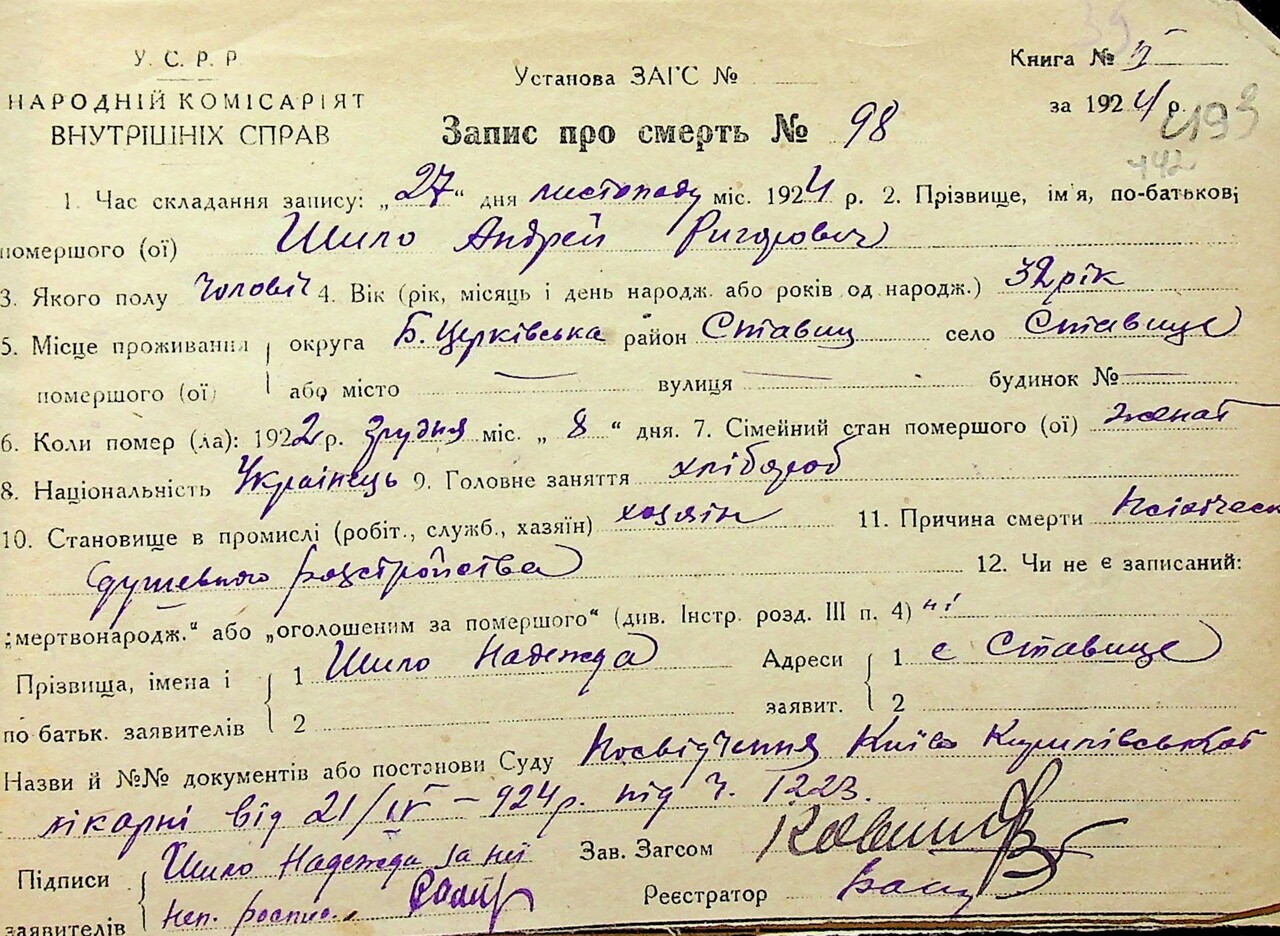 У. С. Р. Р.
НАРОДНІЙ КОМІСАРІЯТ
ВНУТРІШНІХ СПРАВ
Установа ЗАГС №
Запис про смерть № 98
Книга № II
за 1924 р.
193
1. Час складання запису: „27“ дня листопаду міс. 1924 р. 2. Прізвище, ім'я, по-батькові
помершого (ої) Шило Андрей Ригорович
3. Якого полу чоловіч 4. Вік (рік, місяць і день народж. або років од народж.) 32 рік
5. Місце проживання округа Б. Церківська район Ставищ село Ставище
помершого (ої) або місто — вулиця — будинок № —
6. Коли помер (ла): 1922 р. Грудня міс. „8“ дня. 7. Сімейний стан помершого (ої) женат
8. Національність Украінець 9. Головне заняття хлібороб
10. Становище в промислі (робіт., служб., хазяїн) хозяін 11. Причина смерти
душевного розстройства 12. Чи не є записаний:
„мертвонародж.“ або „оголошеним за помершого“ (див. Інстр. розд. III п. 4) ні
Прізвища, імена і по батьк. заявителів 1 Шило Надежда Адреси заявит. 1 с Ставище
2 2
Назви й №№ документів або постанови Суду Посвідчення Київо Кирилівської
лікарні від 21/IV – 924 р. під ч. 1223.
Підписи заявителів Шило Надежда за неї Зав. Загсом
неп. роспис. Реєстратор